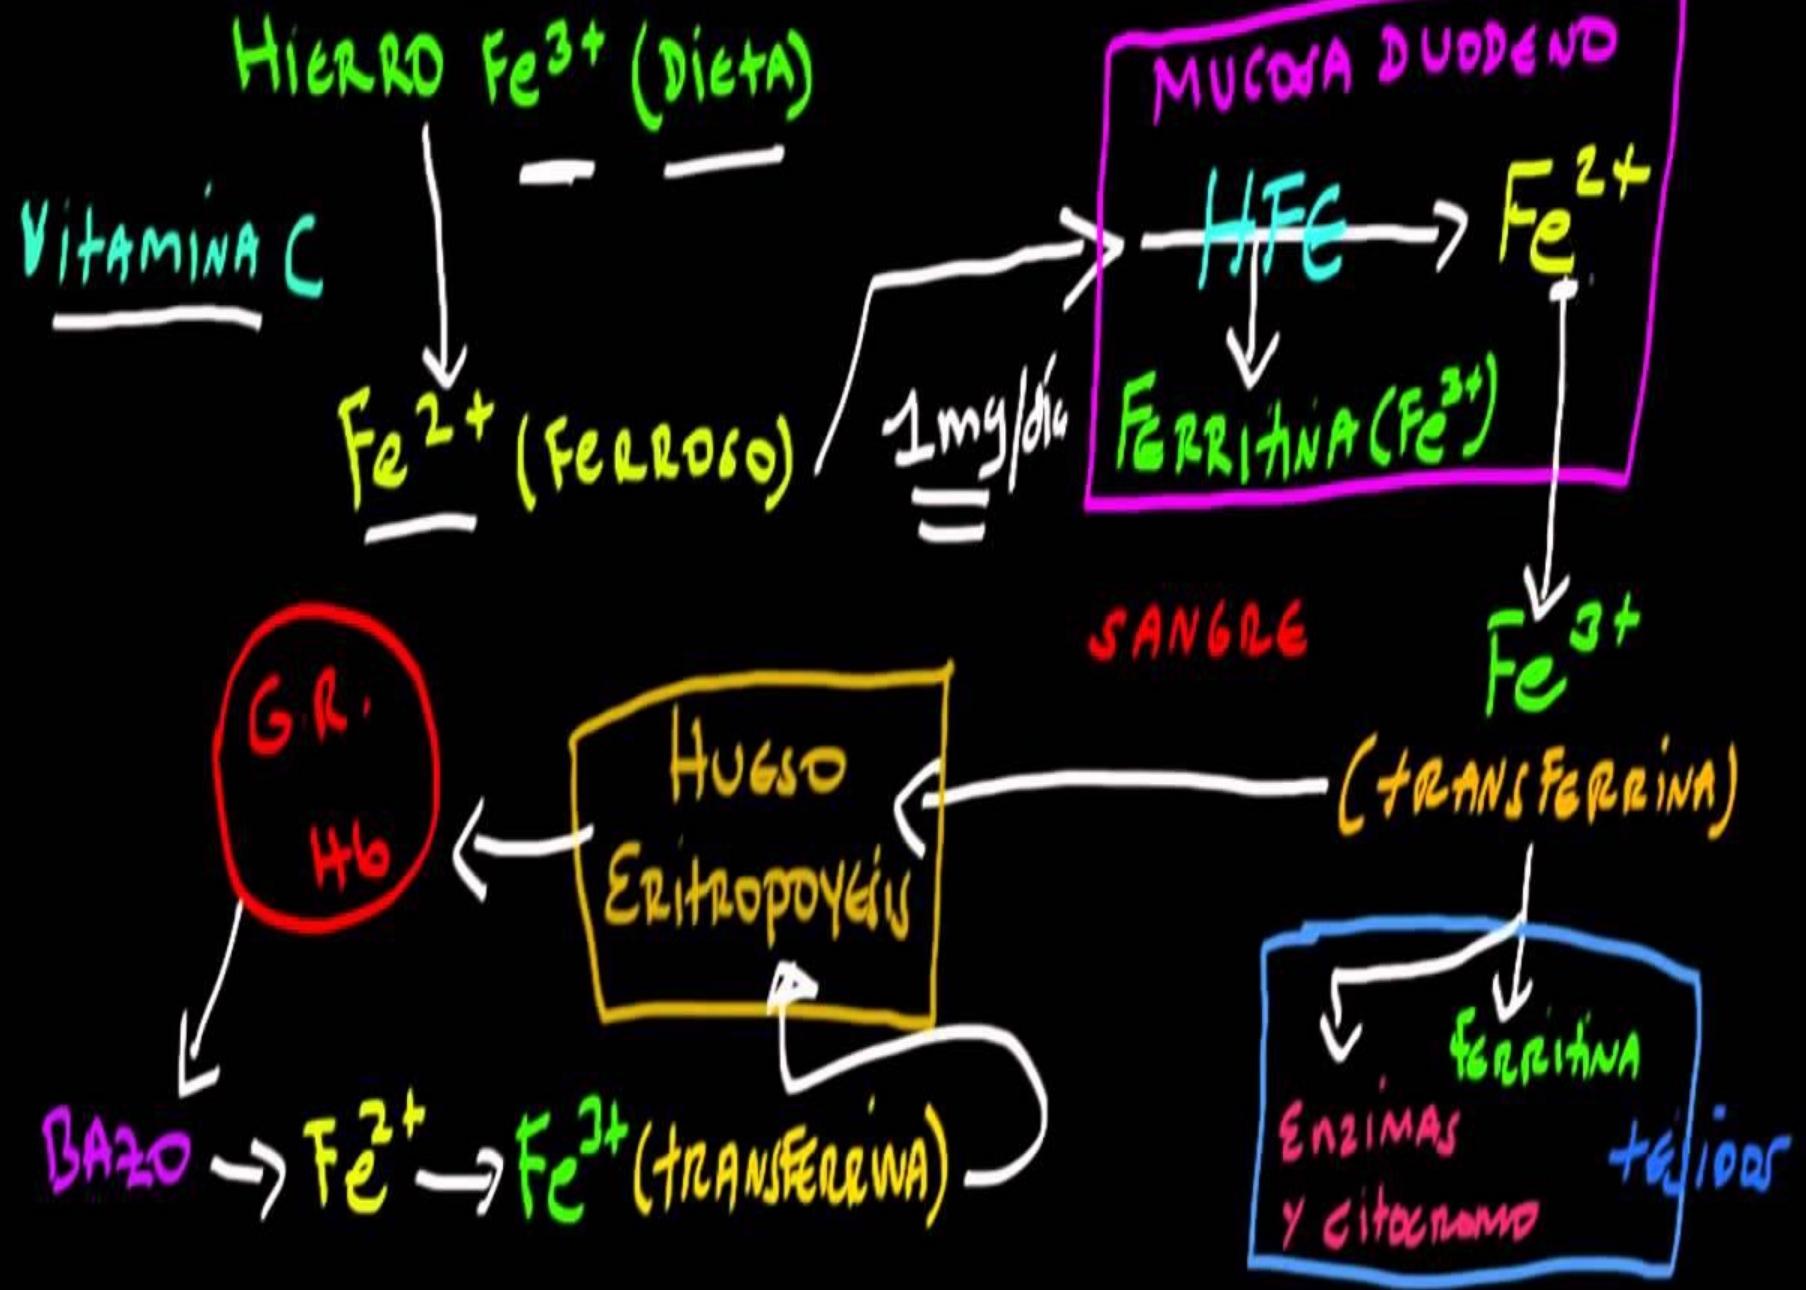 HIERRO Fe3+ (DIETA)
VITAMINA C
Fe2+ (FERROSO)
1mg/día
MUCOSA DUODENO
HFE
Fe2+
FERRITINA (Fe3+)
SANGRE
Fe3+
(TRANSFERRINA)
HUESO
ERITROPOYESIS
G.R.
Hb
BAZO
Fe2+
Fe3+ (TRANSFERRINA)
FERRITINA
ENZIMAS
Y CITOCROMO
TEJIDOS